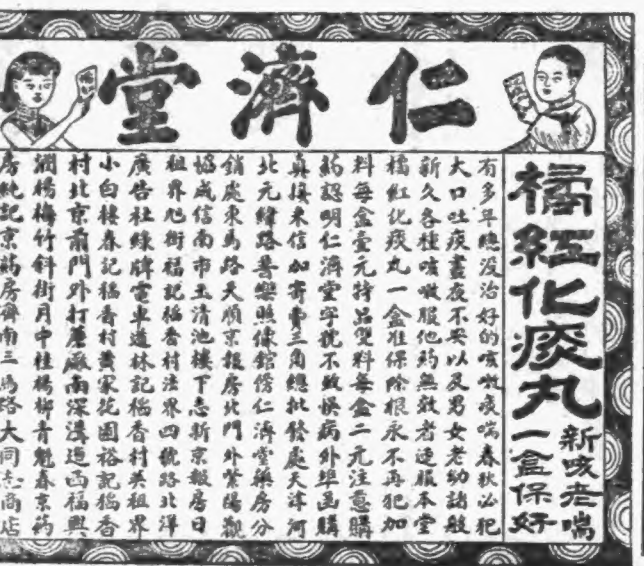 仁濟堂
橘紅化痰丸
新咳老喘
一盒保好
有多年總没治好的咳嗽痰喘春秋必犯
大口吐痰晝夜不安以及男女老幼諸般
新久各種咳嗽服他药無效者速服本堂
橘紅化痰丸一盒准保除根永不再犯加
料每盒壹元特品雙料每盒二元注意購
药認明仁濟堂字號不致悞病外埠函購
真接来信加寄費三角總批發處天津河
北元緯路善樂照像館傍仁濟堂藥房分
銷處東馬路天順京報房北門外紫陽觀
協成信南市玉清池樓下志新京報房日
租界旭街福記稻香村法界四號路北洋
廣告社綠牌電車道林記稻香村英租界
小白樓春記稻香村黄家花園裕記稻香
村北京前門外打磨廠南深溝廻西福興
潤楊梅竹斜街月中桂楊柳青魁春京药
房純記京药房濟南三馬路大同志商店